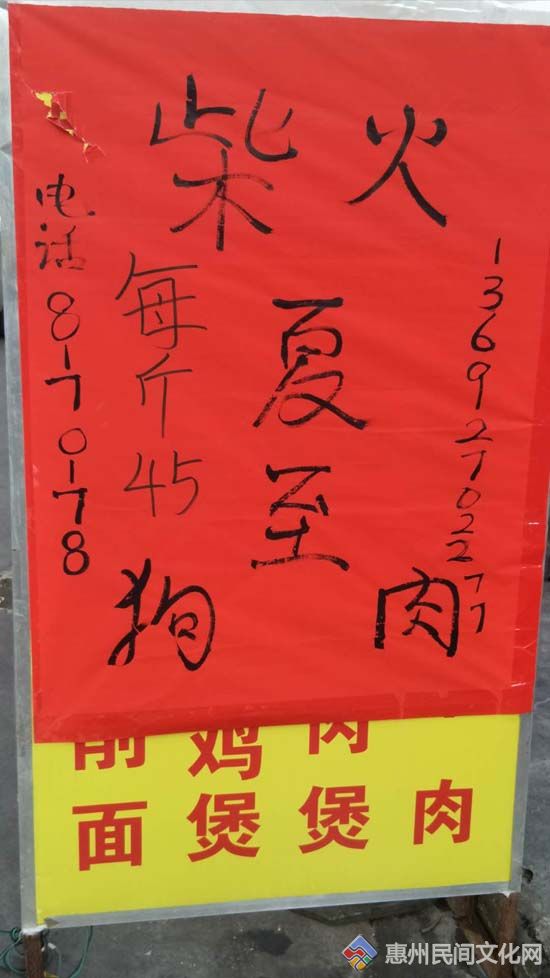 柴火
夏至
狗肉
每斤45
电话8170178
13692702277
削鸡肉
面煲煲肉
惠州民间文化网